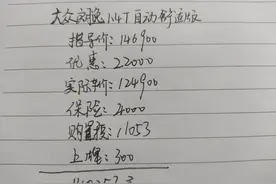 大众朗逸1.4T自动舒适版
指导价：146900
优惠：22000
实际车价：124900
保险：4000
购置税：11053
上牌：300